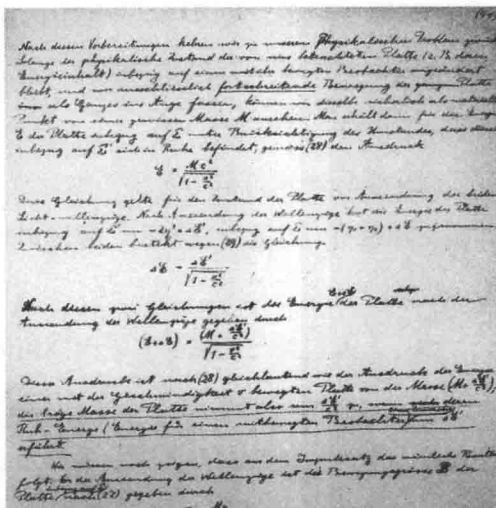 Nach diesen Vorbereitungen kehren wir zu unserem physikalischen Problem zurück
Solange der physikalische Zustand der von uns betrachteten Platte (z. B. deren
Energieinhalt) inbezug auf einen mit ihr bewegten Beobachter ungeändert
bleibt, und wir ausschliesslich fortschreitende Bewegung der ganzen Platte
als Ganzes ins Auge fassen, können wir dieselbe als materiellen
Punkt von einer gewissen Masse M ansehen. Man erhält dann für die Energie
E der Platte inbezug auf Σ unter Berücksichtigung des Umstandes, dass diese
inbezug auf Σ' sich in Ruhe befindet, gemäss (28) den Ausdruck
E = Mc² / √(1 - v²/c²)
Diese Gleichung gelte für den Zustand der Platte vor Aussendung der beiden
Licht-Wellenzüge. Nach Aussendung der Wellenzüge hat die Energie der Platte
inbezug auf Σ' um = ΔE', inbezug auf Σ um = ΔE zugenommen.
Zwischen beiden besteht wegen (29) die Gleichung
ΔE = ΔE' / √(1 - v²/c²)
Nach diesen zwei Gleichungen ist die Energie E+ΔE der Platte nach der
Aussendung der Wellenzüge gegeben durch
(E+ΔE) = (M + ΔE'/c²)c² / √(1 - v²/c²)
Dieser Ausdruck ist nach (28) gleichlautend wie der Ausdruck der Energie
einer mit der Geschwindigkeit v bewegten Platte von der Masse (M + ΔE'/c²);
die träge Masse der Platte nimmt also um ΔE'/c² zu, wenn deren
Ruh-Energie (Energie für einen mitbewegten Beobachter) um ΔE'
erfährt.
Wir müssen noch zeigen, dass aus dem Impulssatz das nämliche Resultat
folgt. Vor der Aussendung der Wellenzüge ist die Bewegungsgrösse der
Platte nach (27) gegeben durch